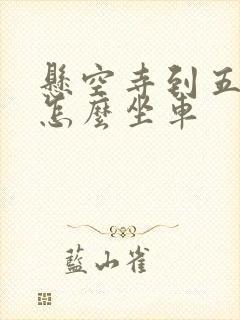 懸空寺到五
怎麼坐車
藍山雀